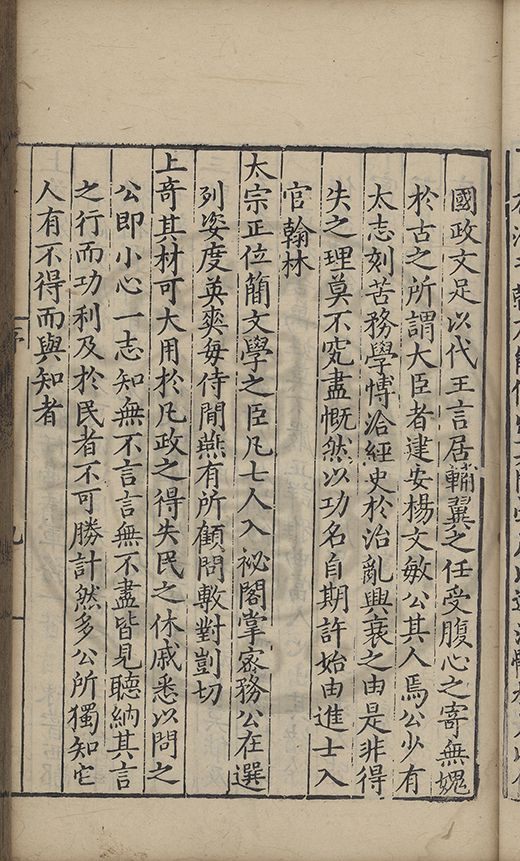 國政文足以代王言居輔翼之任受腹心之寄無媿
於古之所謂大臣者建安楊文敏公其人焉公少有
太志刻苦務學博洽經史於治亂興衰之由是非得
失之理莫不究盡慨然以功名自期許始由進士入
官翰林
太宗正位簡文學之臣凡七人入祕閣掌宻務公在選
列姿度英爽每侍閒燕有所顧問敷對剴切
上竒其材可大用於凡政之得失民之休戚悉以問之
公即小心一志知無不言言無不盡皆見聽納其言
之行而功利及於民者不可勝計然多公所獨知它
人有不得而與知者
序
九